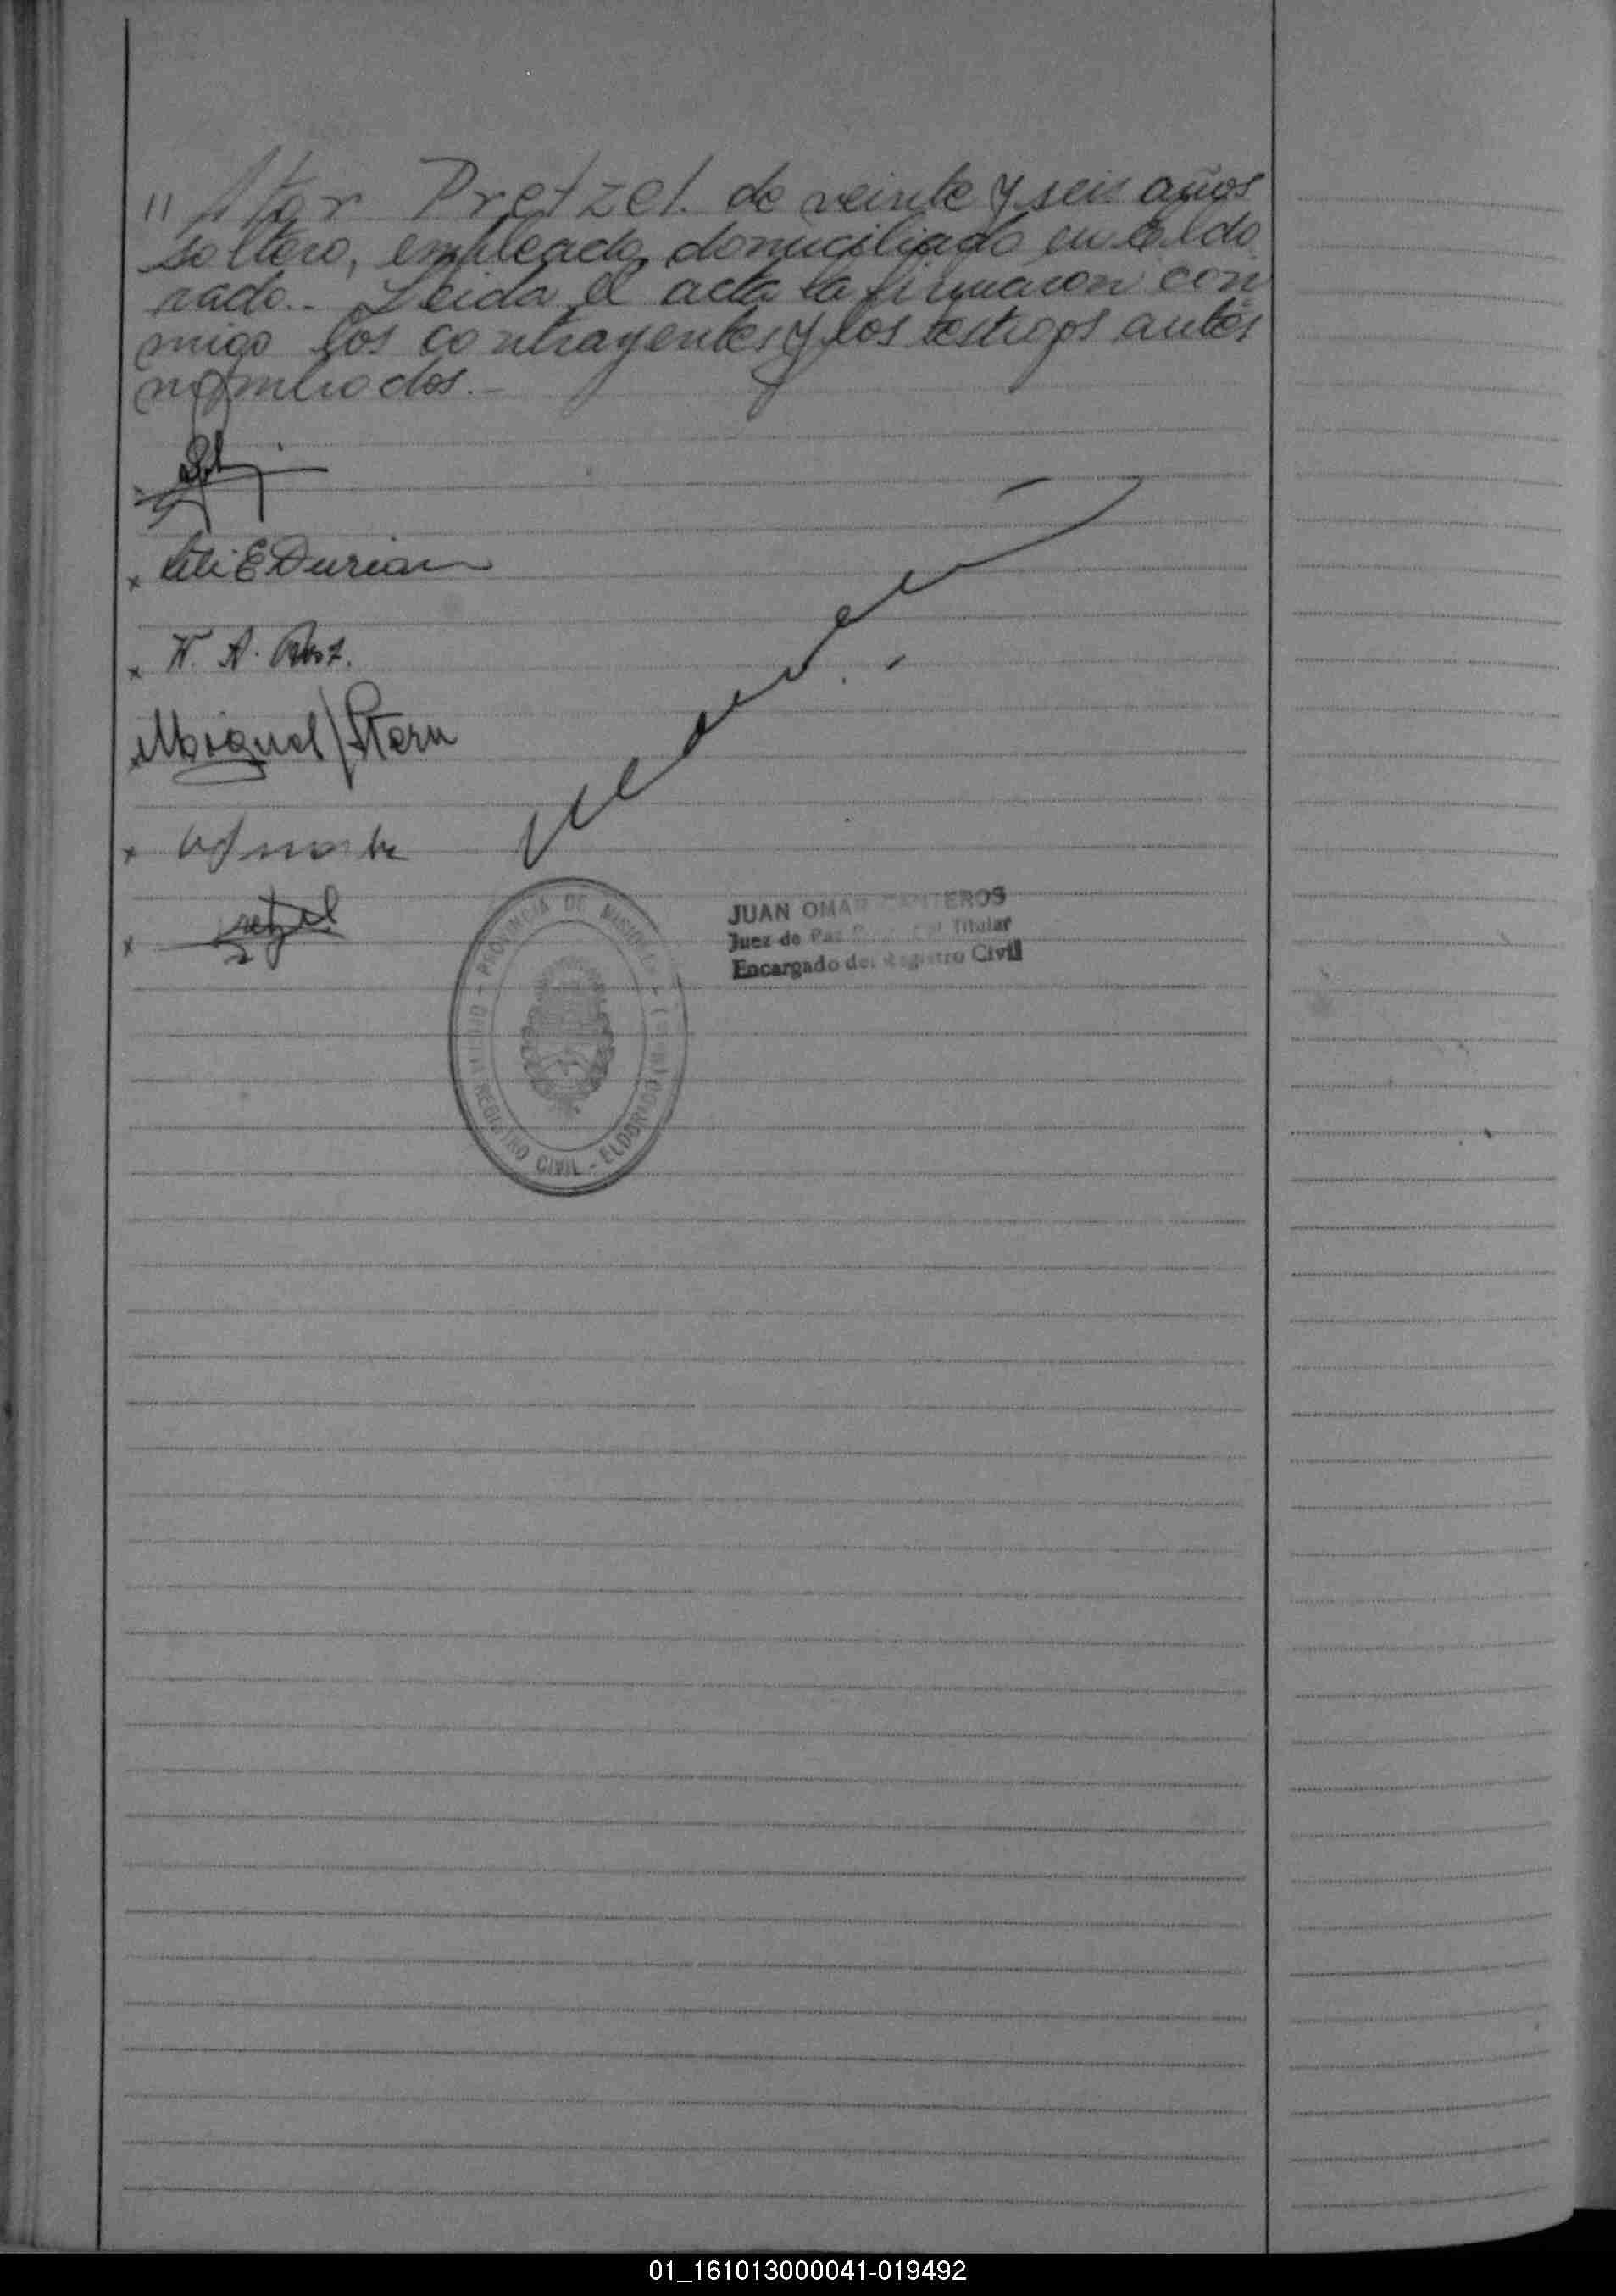 " Pretzel. de veinte y seis años
soltero, empleado, domiciliado en Eldo
rado.. Leida el acta la firmaron con
migo los contrayentes y los testigos antes
nombrados.-
x Lili E Durian
x W. A.
Miguel Stern
x
x
PROVINCIA DE MISIONES
REGISTRO CIVIL - ELDORADO
JUAN OMAR CANTEROS
Juez de Paz Titular
Encargado del Registro Civil
01_161013000041-019492